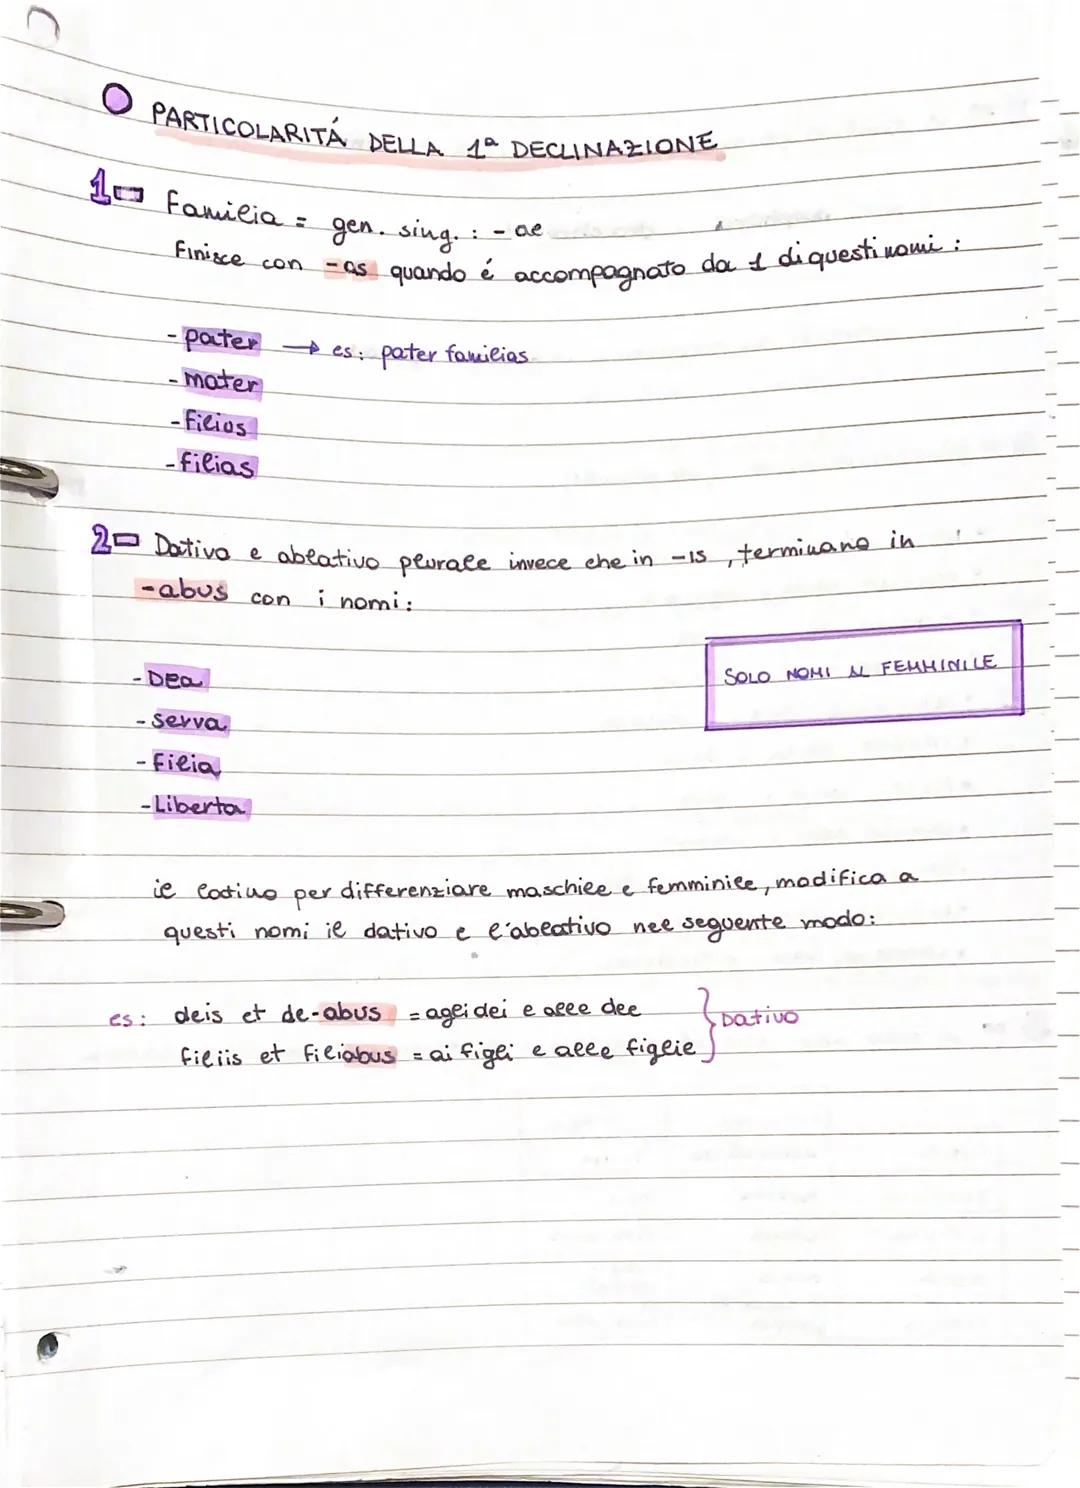 PARTICOLARITÁ DELLA 1ª DECLINAZIONE
1 Familia = gen. sing. : - ae
Finisce con -as quando é accompagnato da 1 di questi nomi :
- pater → es: pater familias
- mater
- filios
- filias
2 Dativo e ablativo plurale invece che in -is, terminano in
-abus con i nomi:
- Dea
- serva
- filia
- Liberta
SOLO NOMI AL FEMMINILE
il latino per differenziare maschile e femminile, modifica a
questi nomi il dativo e l'ablativo nel seguente modo:
es: deis et de-abus = agli dei e alle dee
filiis et filiabus = ai figli e alle figlie
Dativo